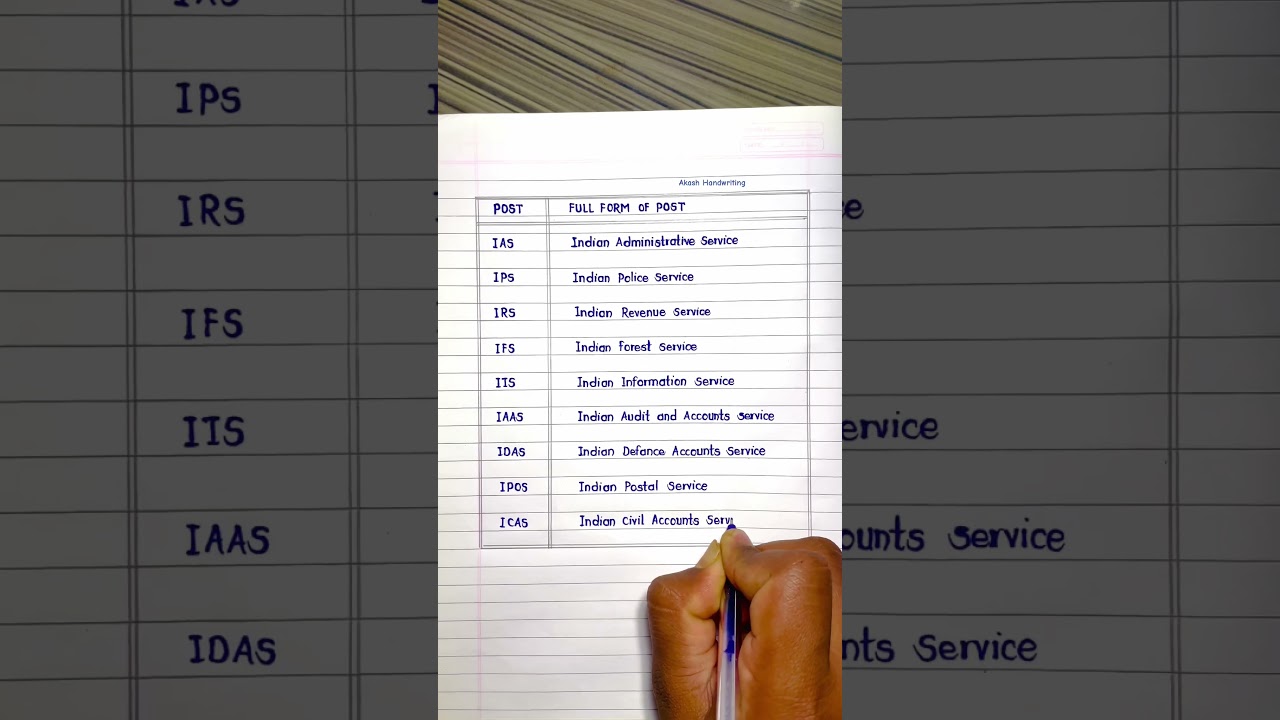 Akash Handwriting
POST FULL FORM OF POST
IAS Indian Administrative Service
IPS Indian Police Service
IRS Indian Revenue Service
IFS Indian Forest Service
ITS Indian Information Service
IAAS Indian Audit and Accounts Service
IDAS Indian Defance Accounts Service
IPOS Indian Postal Service
ICAS Indian Civil Accounts Serv
IPS
IRS
IFS
ITS ervice
IAAS ounts Service
IDAS nts Service